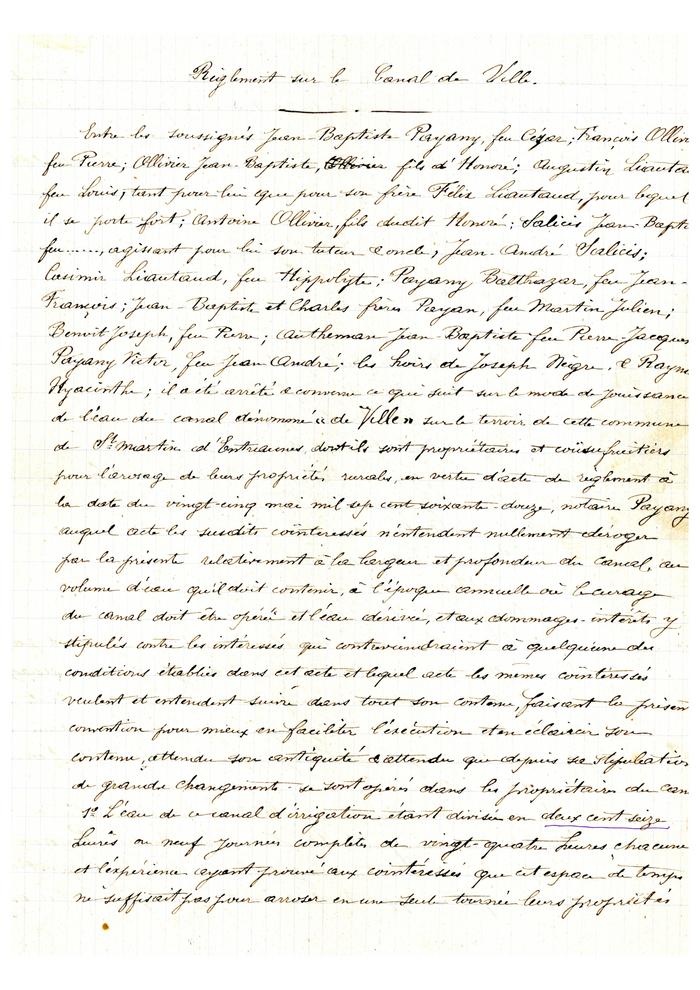 Règlement sur le Canal de Ville.
Entre les soussignés Jean-Baptiste Payany, feu Cézar ; François Ollivi
feu Pierre ; Ollivier Jean-Baptiste, fils d'Honoré ; Augustin Liauta
feu Louis, tant pour lui que pour son frère Félix Liautaud, pour lequel
il se porte fort ; Antoine Ollivier, fils dudit Honoré ; Salicis Jean-Bapti
feu ......, agissant pour lui son tuteur & oncle, Jean-André Salicis ;
Casimir Liautaud, feu Hippolyte ; Payany Balthazar, feu Jean-
François ; Jean-Baptiste et Charles frères Payan, feu Martin Julien ;
Benoit Joseph, feu Pierre ; Autheman Jean-Baptiste feu Pierre-Jacques
Payany Victor, feu Jean André ; les hoirs de Joseph Nègre, & Rayn
Hyacinthe ; il a été arrêté & convenu ce qui suit sur le mode de jouissance
de l'eau du canal dénommé « de Ville » sur le terroir de cette commune
de St Martin d'Entraunes, dont ils sont propriétaires et coüsufruitiers
pour l'arosage de leurs propriétés rurales, en vertu d'acte de règlement à
la date du vingt-cinq mai mil sep cent soixante-douze, notaire Payany
auquel acte les susdits cointeressés n'entendent nullement déroger
par la présente relativement à la largeur et profondeur du canal, au
volume d'eau qu'il doit contenir, à l'époque annuelle où le curage
du canal doit être opéré et l'eau dérivée, et aux dommages-intérêts y
stipulés contre les intéressés qui contreviendraient à quelqu'une des
conditions établies dans cet acte et lequel acte les mêmes cointéressés
veulent et entendent suivre dans tout son contenu, faisant la présen
convention pour mieux en faciliter l'exécution et en éclaircir son
contenu, attendu son antiquité & attendu que depuis sa stipulation
de grands changements se sont opérés dans les propriétaires du can
1º L'eau de ce canal d'irrigation étant divisée en deux cent seize
heures ou neuf journées complètes de vingt-quatre heures chacune
et l'expérience ayant prouvé aux cointéressés que cet espace de temps
ne suffisait pas pour arroser en une seule tournée leurs propriétés